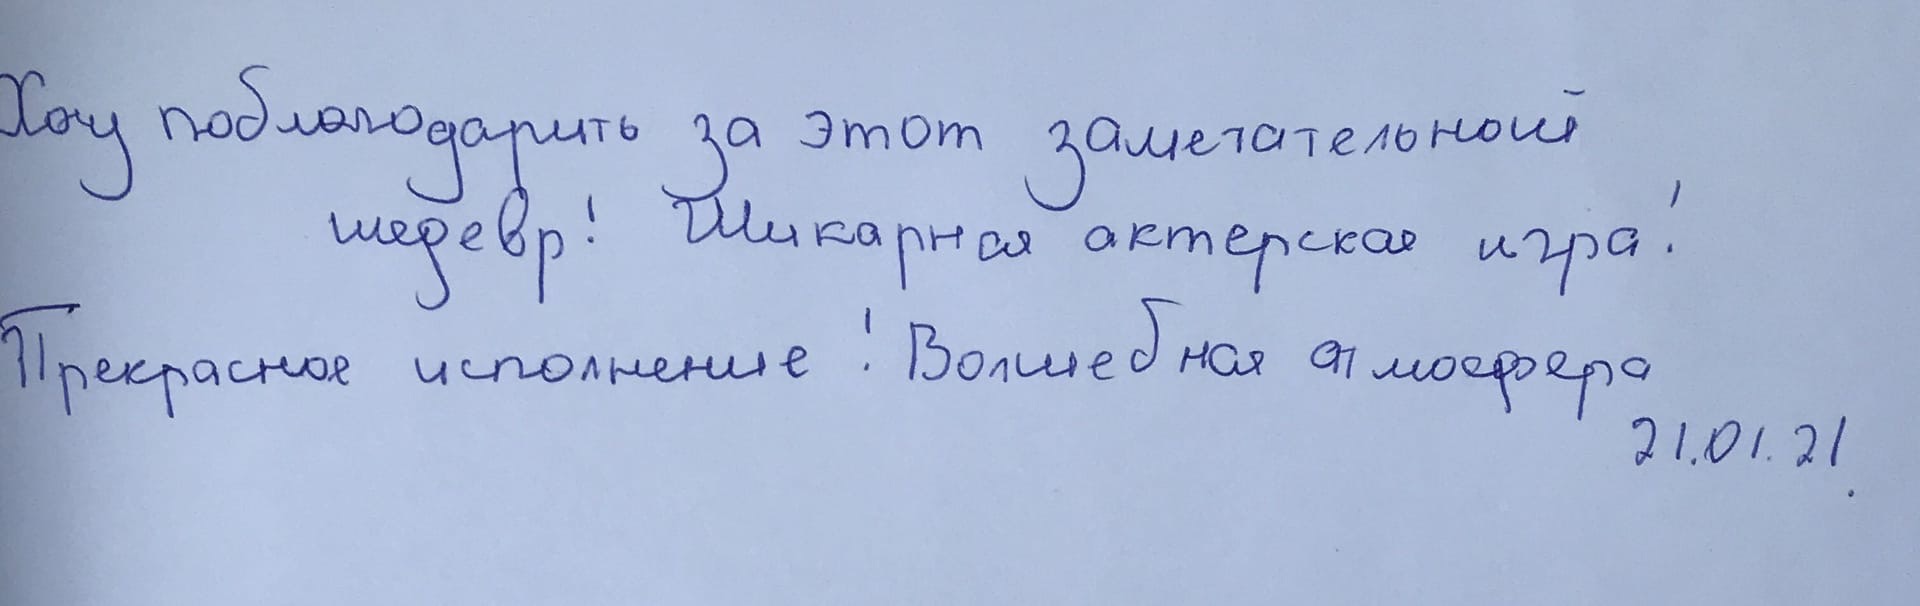 Хочу поблагодарить за этот замечательный
шедевр! Шикарная актерская игра!
Прекрасное исполнение! Волшебная атмосфера
21.01.21.